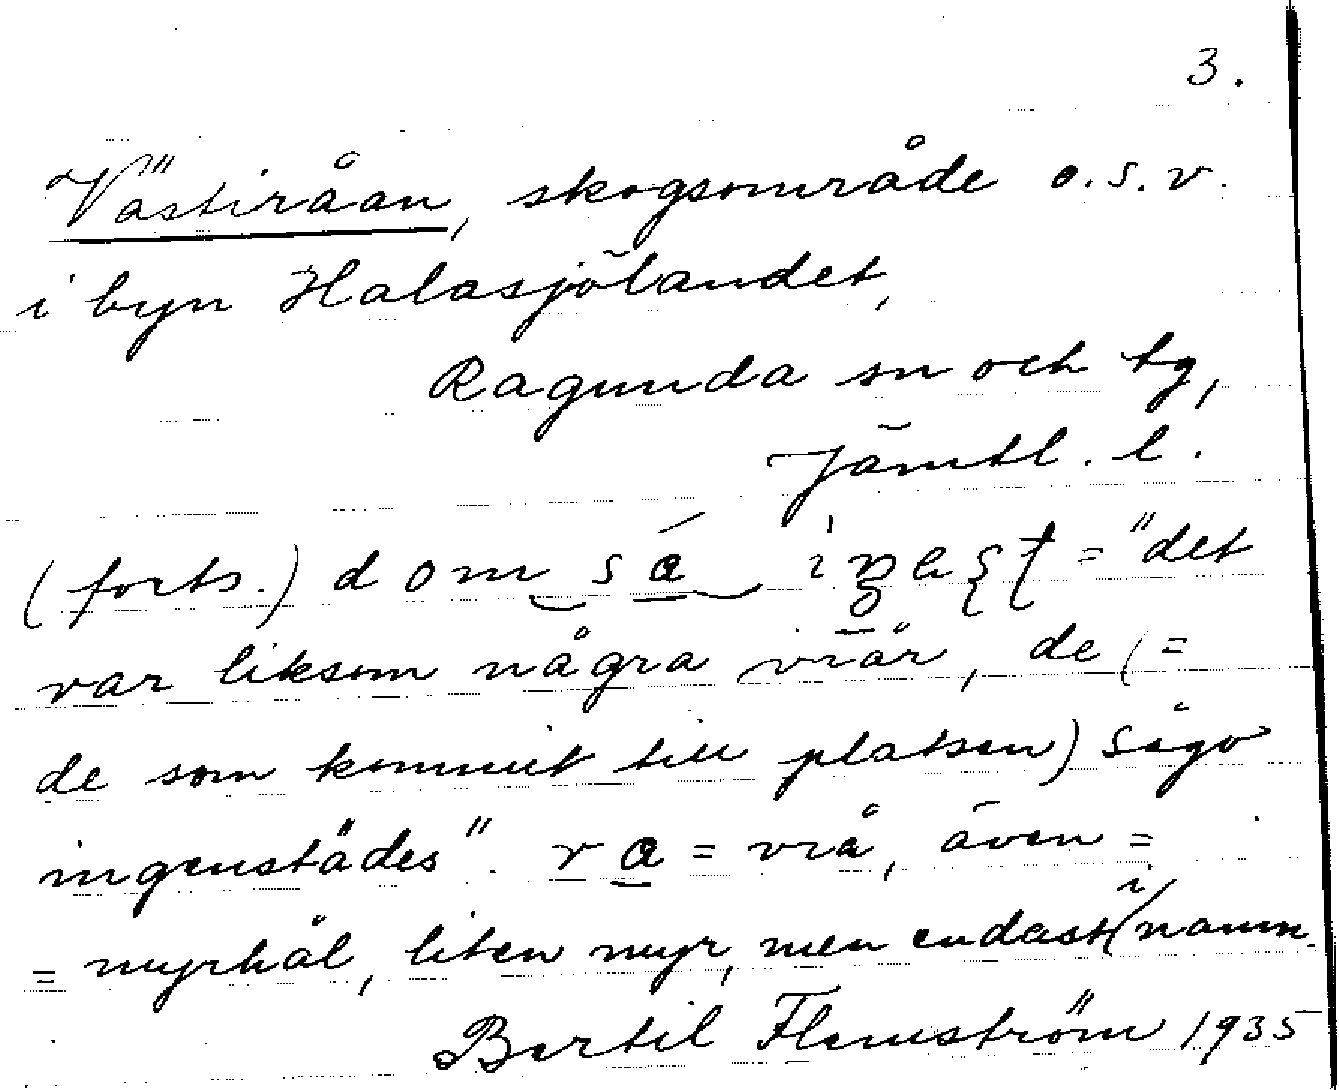 3.
Västiråan, skogsområde o.s.v.
i byn Halasjölandet,
Ragunda sn och tg,
Jämtl. l.
(forts.) dom = "det
var liksom några vrår, de (=
de som kommit till platsen) sågo
ingenstädes". = vrå, även =
= myrhål, liten myr, men endast i namn.
Bertil Flemström 1935